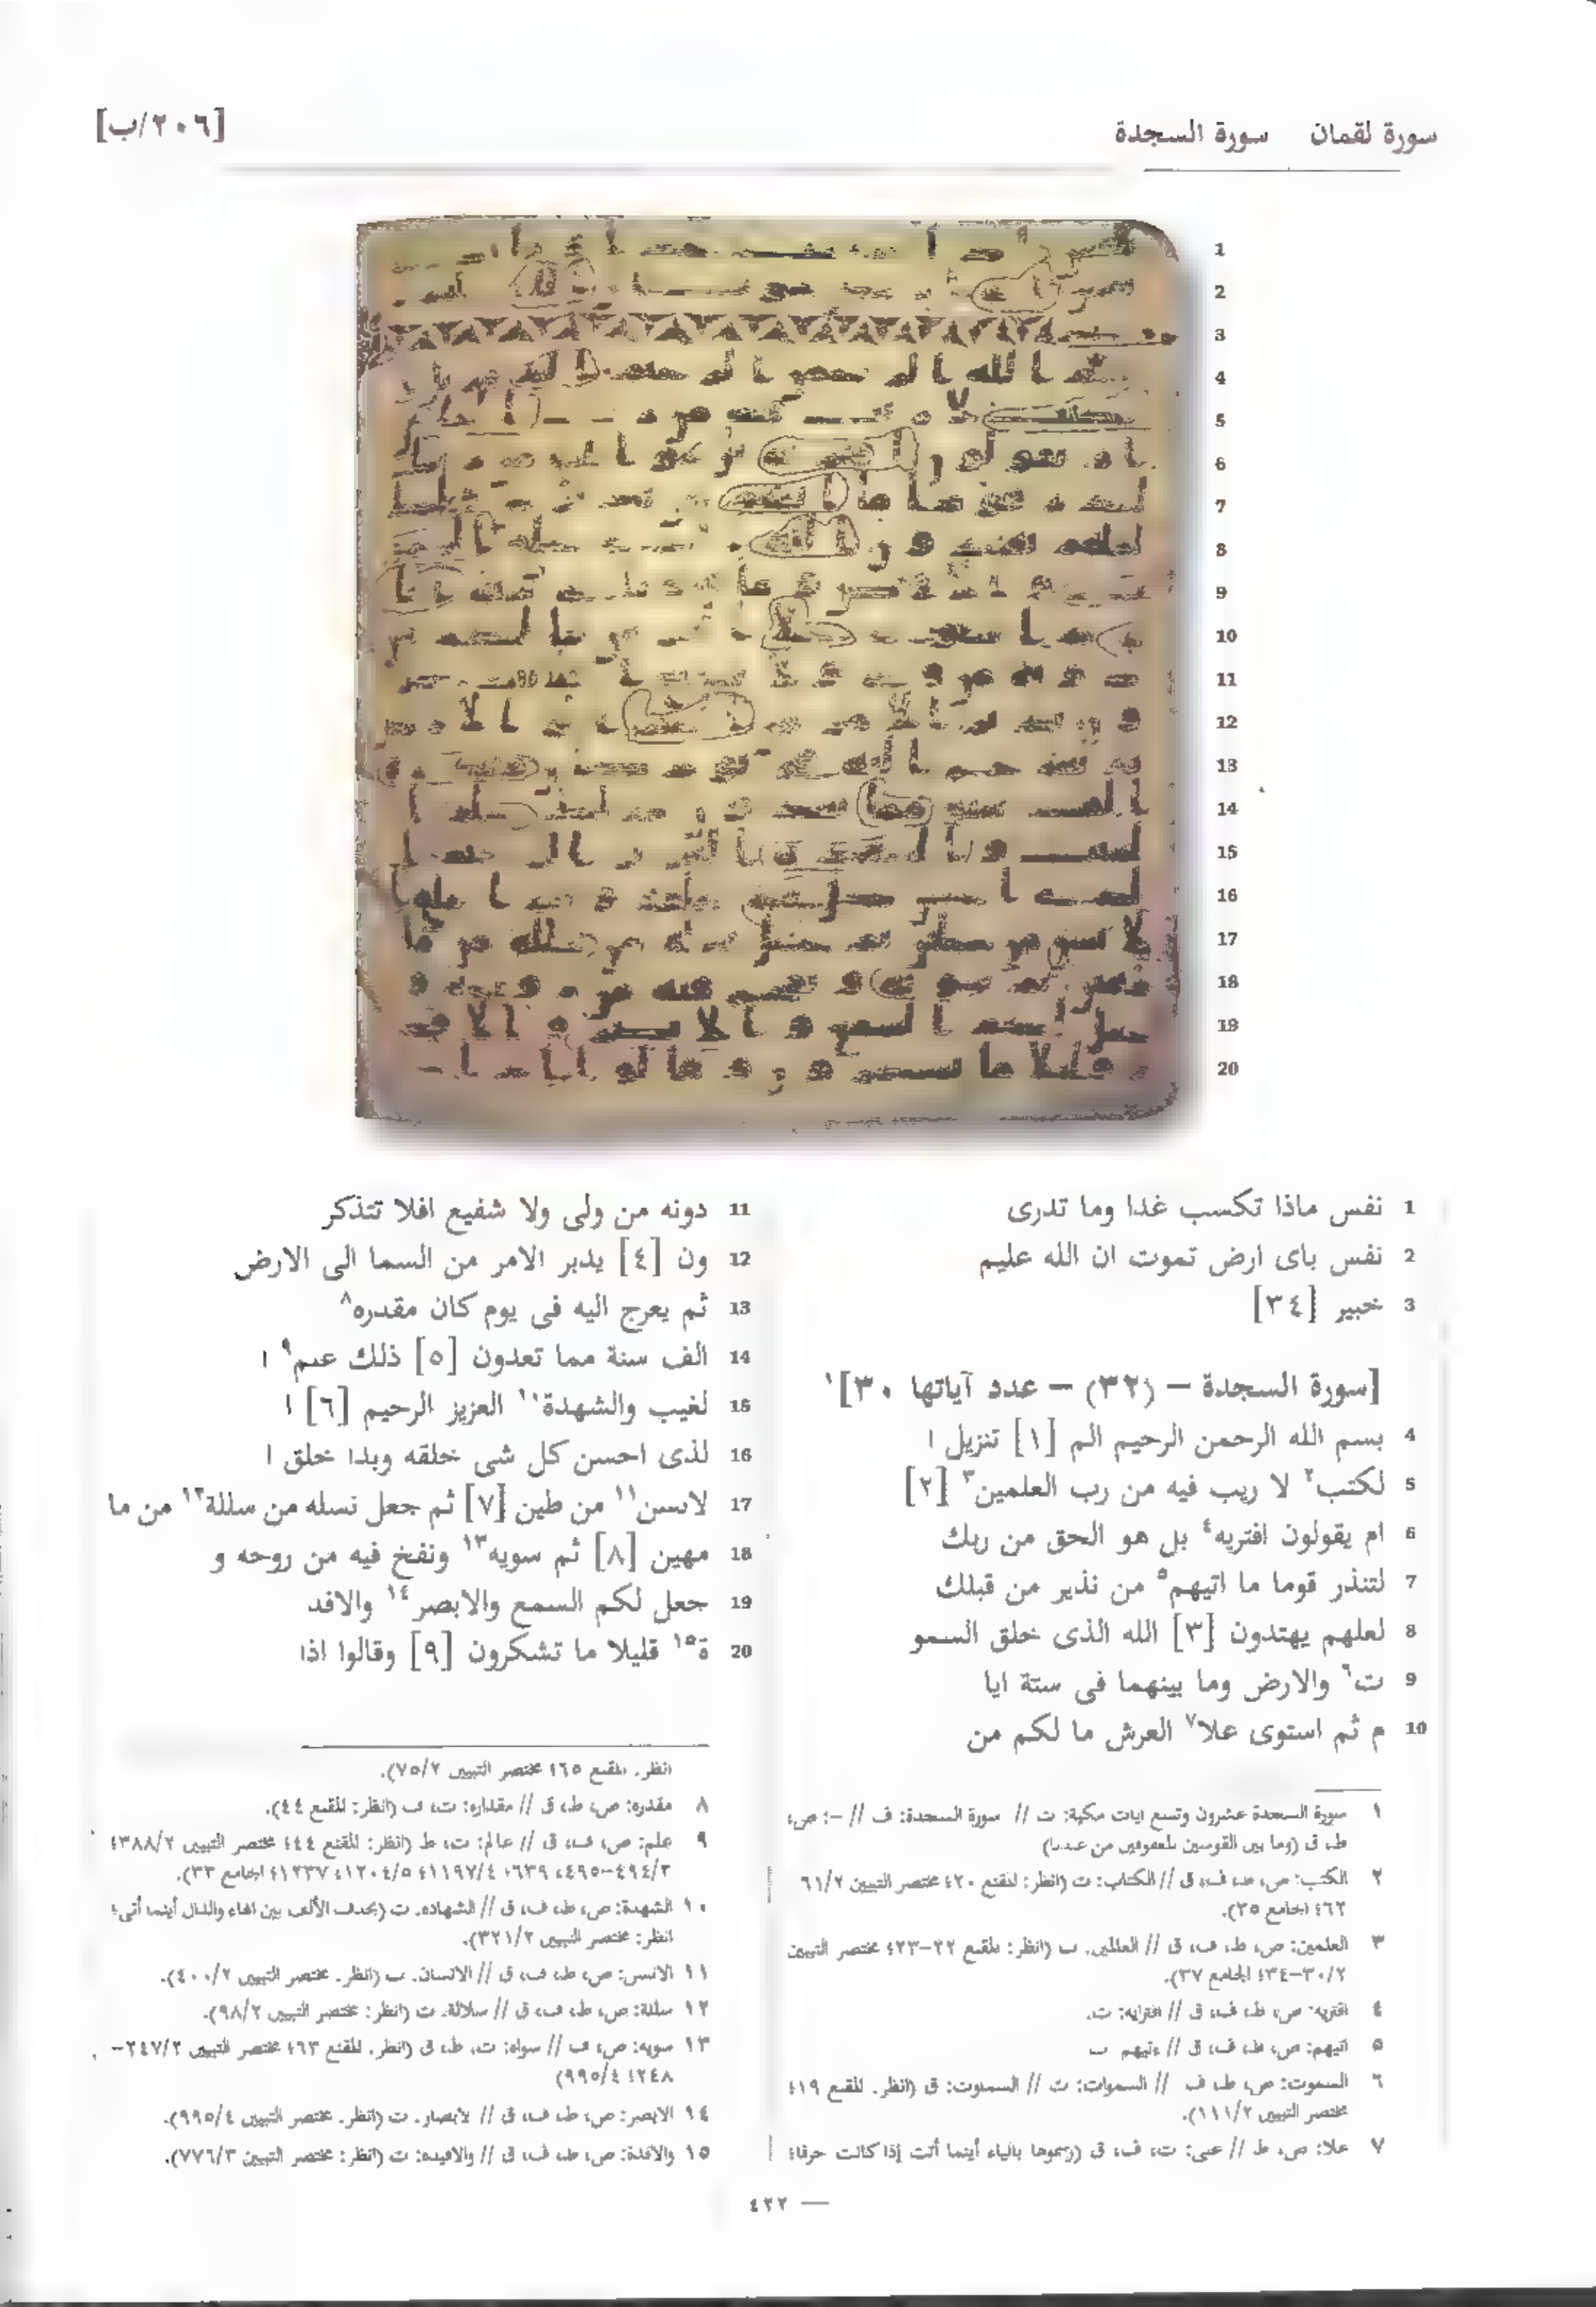 سورة لقمان    سورة السجدة
[٢٠٦/ب]
1 نفس ماذا تكسب غدا وما تدرى
2 نفس باى ارض تموت ان الله عليم
3 خبير [٣٤]
[سورة السجدة – (٣٢) – عدد آياتها ٣٠]١
4 بسم الله الرحمن الرحيم الم [١] تنزيل ا
5 لكتب٢ لا ريب فيه من رب العلمين٣ [٢]
6 ام يقولون افتريه٤ بل هو الحق من ربك
7 لتنذر قوما ما اتيهم٥ من نذير من قبلك
8 لعلهم يهتدون [٣] الله الذى خلق السمو
9 ت٦ والارض وما بينهما فى ستة ايا
10 م ثم استوى علا٧ العرش ما لكم من
11 دونه من ولى ولا شفيع افلا تتذكر
12 ون [٤] يدبر الامر من السما الى الارض
13 ثم يعرج اليه فى يوم كان مقدره٨
14 الف سنة مما تعدون [٥] ذلك علم٩ ا
15 لغيب والشهدة١٠ العزيز الرحيم [٦] ا
16 لذى احسن كل شى خلقه وبدا خلق ا
17 لانسن١١ من طين [٧] ثم جعل نسله من سللة١٢ من ما
18 مهين [٨] ثم سويه١٣ ونفخ فيه من روحه و
19 جعل لكم السمع والابصر١٤ والافد
20 ة١٥ قليلا ما تشكرون [٩] وقالوا اذا
١ سورة السجدة عشرون وتسع ايات مكية: ت // سورة السجدة: ف // –: ص،
ط، ق (وما بين القوسين المعقوفين من عندنا)
٢ الكتب: ص، ط، ف، ق // الكتاب: ت (انظر: المقنع ٢٠؛ مختصر التبيين ٦١/٢
٦٢؛ الجامع ٣٥).
٣ العلمين: ص، ط، ف، ق // العالمين: ت (انظر: المقنع ٢٢-٢٣؛ مختصر التبيين
٣٠/٢-٣٤؛ الجامع ٣٧).
٤ افتريه: ص، ط، ف، ق // افترايه: ت.
٥ اتيهم: ص، ط، ف، ق //
٦ السموت: ص، ط، ف // السموات: ت // السمٰوت: ق (انظر: المقنع ١٩؛
مختصر التبيين ١١١/٢).
٧ علا: ص، ط // على: ت، ف، ق (رسموها بالياء أينما أتت إذا كانت حرفا؛
انظر: المقنع ٦٥؛ مختصر التبيين ٧٥/٢).
٨ مقدره: ص، ط، ق // مقداره: ت، ف (انظر: المقنع ٤٤).
٩ علم: ص، ف، ق // عالم: ت، ط (انظر: المقنع ٤٤؛ مختصر التبيين
الجامع ٣٣).
١٠ الشهدة: ص، ط، ف، ق // الشهاده: ت (بحذف الألف بين الهاء والدال أينما أتى؛
انظر: مختصر التبيين ٣٢١/٢).
١١ الانسن: ص، ط، ف، ق // الانسان: ت (انظر: مختصر التبيين ٤٠٠/٢).
١٢ سللة: ص، ط، ف، ق // سلالة: ت (انظر: مختصر التبيين ٩٨/٢).
١٣ سويه: ص، ف // سواه: ت، ط، ق (انظر: المقنع ٦٣؛ مختصر التبيين ٢٤٧/٢-
٢٤٨؛ ٩٩٥/٤)
١٤ الابصر: ص، ط، ف، ق // لابصار: ت (انظر: مختصر التبيين ٩٩٥/٤).
١٥ والافدة: ص، ط، ف، ق // والافيده: ت (انظر: مختصر التبيين ٧٧٦/٣).
— ٤٢٢